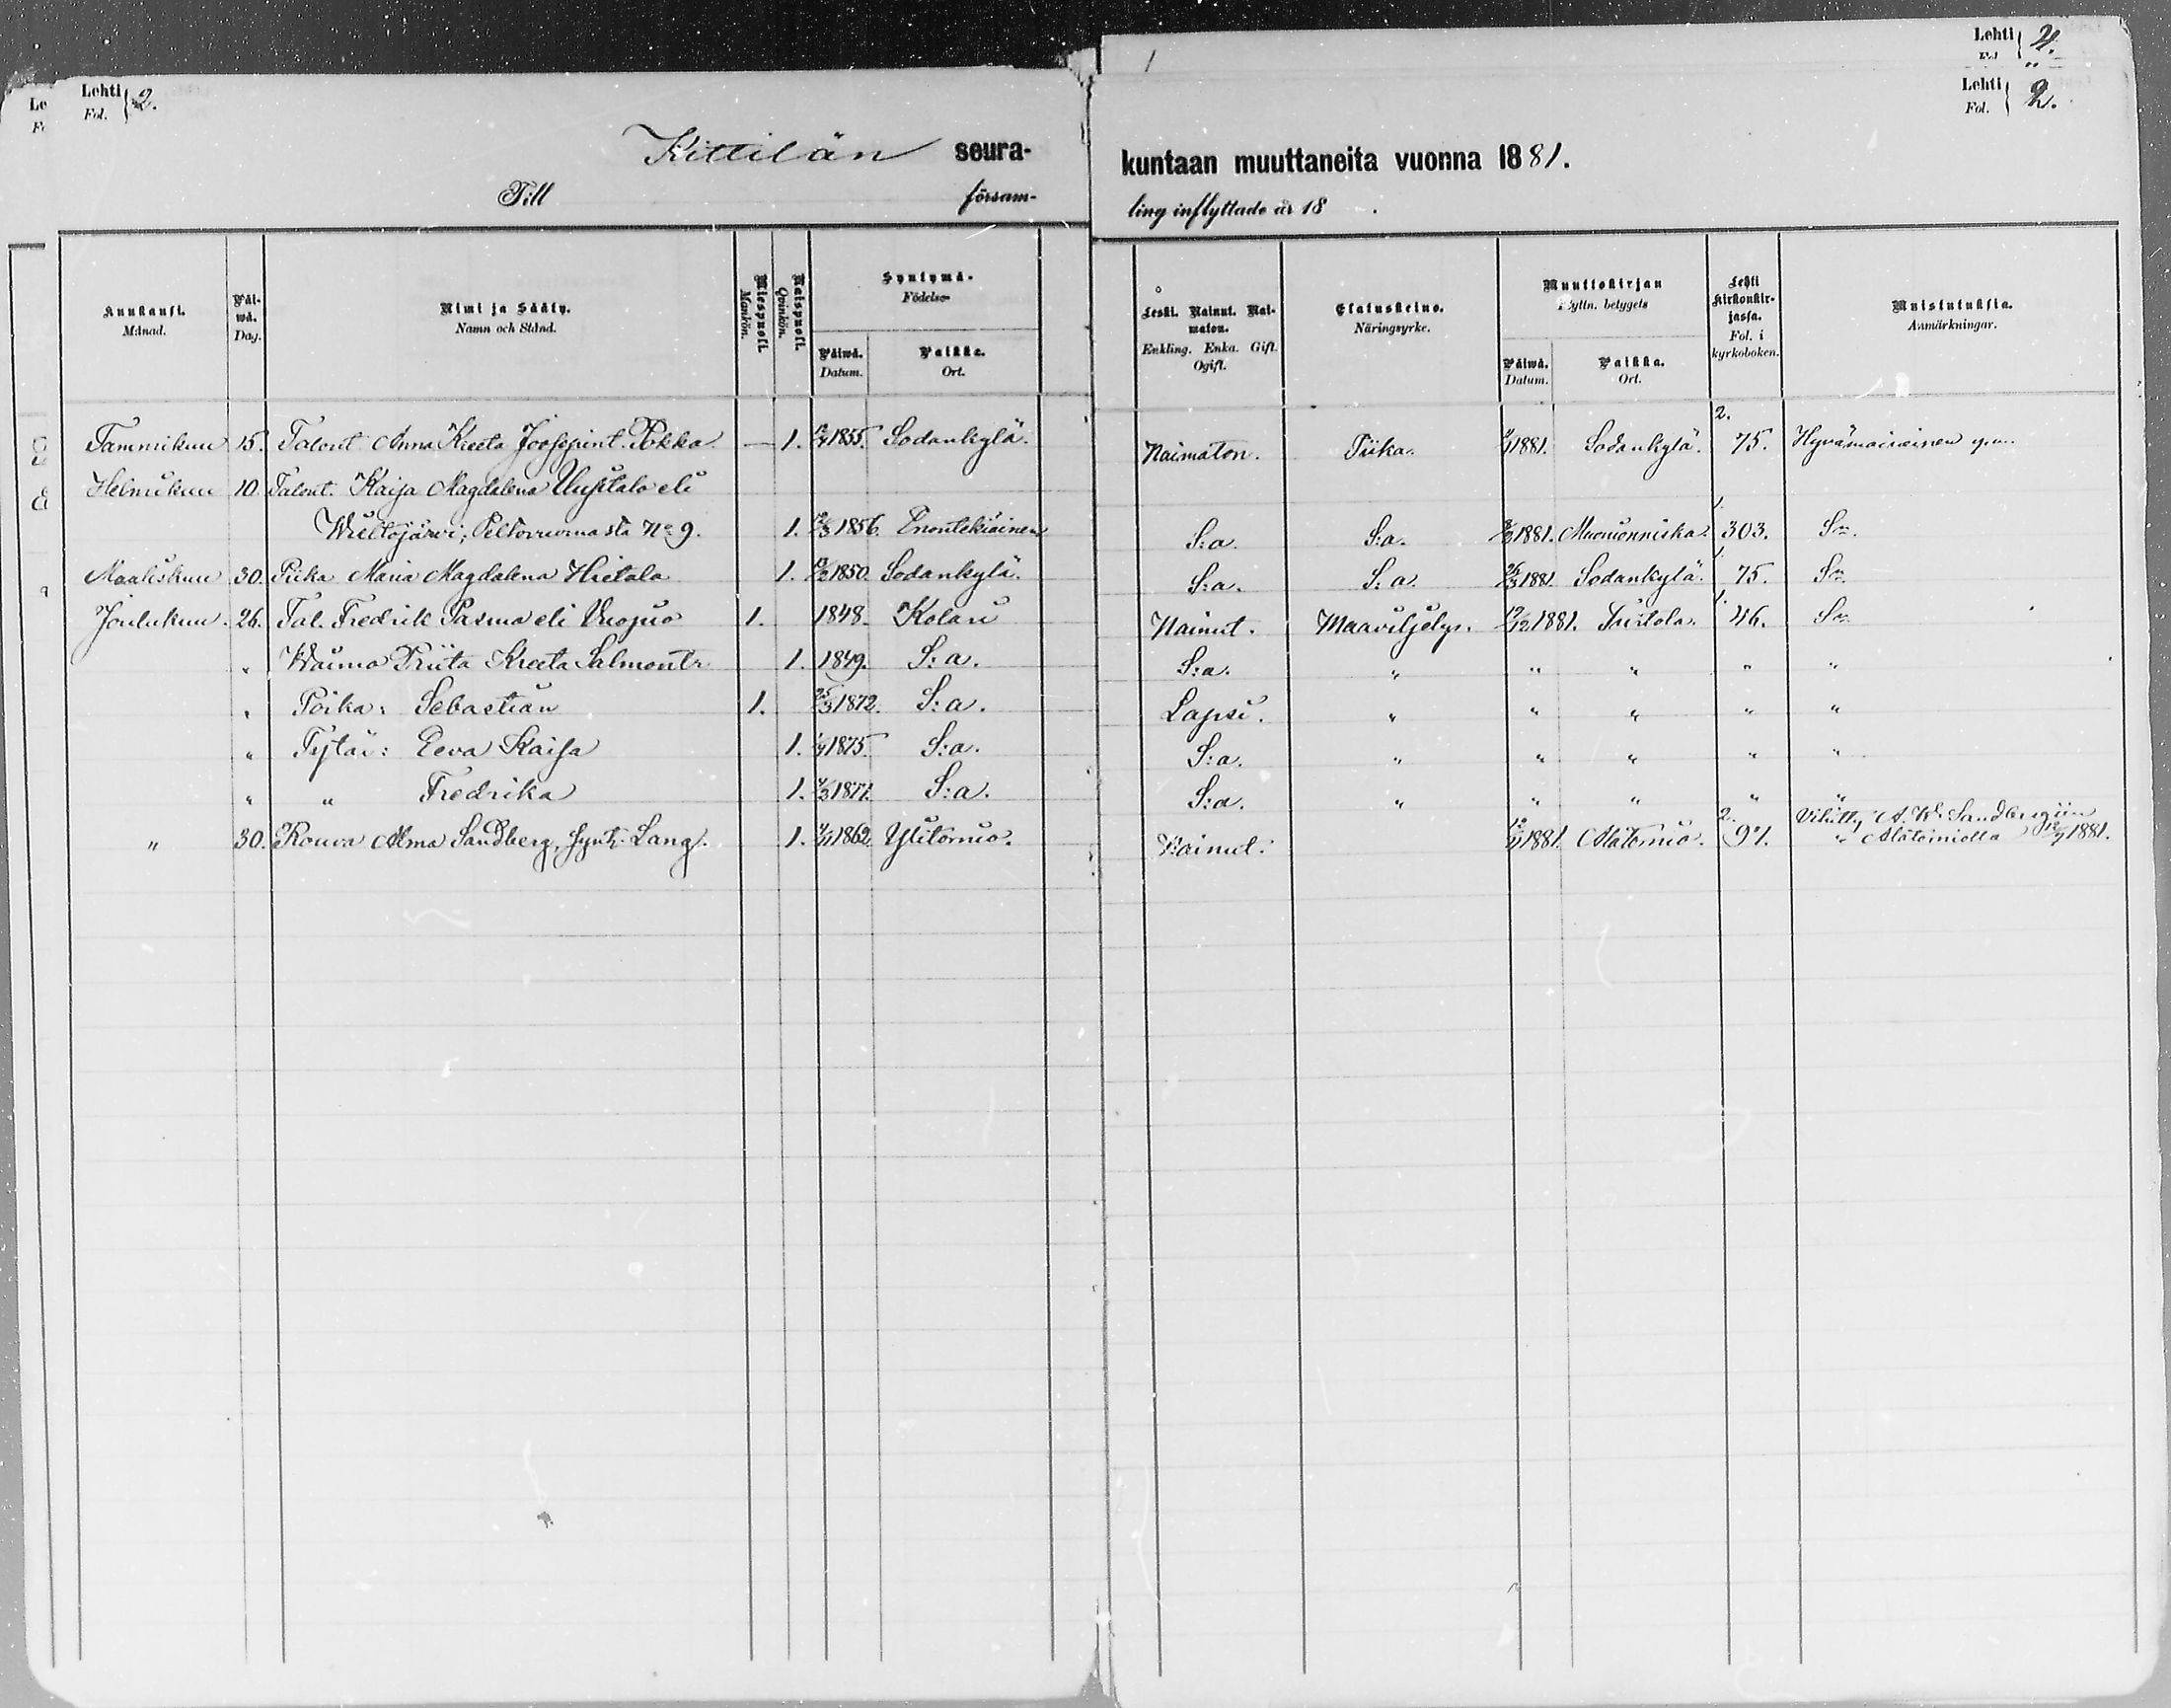 Lehti 2.
Fol.
Lehti 2.
Lehti 2.
Fol.
Kittilän seura-
kuntaan muuttaneita vuonna 1881.
Till försam-
ling inflyttade år 18 .
Kuukausi. Månad.
Päi-wä. Dag.
Nimi ja Sääty. Namn och Stånd.
Miespuoli. Mankön.
Naispuoli. Qvinkön.
Syntymä- Födelse-
Päiwä. Datum.
Paikka. Ort.
Leski. Nainut. Nai-maton. Enkling. Enka. Gift. Ogift.
Elatuskeino. Näringsyrke.
Muuttokirjan Flyttn. betygets
Päiwä. Datum.
Paikka. Ort.
Lehti kirkonkir-jassa. Fol. i kyrkoboken.
Muistutuksia. Anmärkningar.
Tammikuu 15. Talont. Anna Kreeta Joosepint. Pokka. — 1. 1855. Sodankylä. Naimaton. Piika. 1881. Sodankylä. 2. 75. Hyvämaineinen
Helmikuu 10. Talont. Kaisa Magdalena Uusitalo eli
Wieltojärvi, Peltovuomasta No 9. 1. 1856. Enontekiäinen S:a. S:a. 1881. Muonionniska. 1. 303. Sn.
Maaliskuu 30. Piika Maria Magdalena Hietala 1. 1850. Sodankylä. S:a. S:a. 26/3 1881. Sodankylä. 1. 75. Sn.
Joulukuu. 26. Tal. Fredrik Pasma eli Vuojuo 1. 1848. Kolari Nainut. Maaviljelys. /12 1881. Turtola. 1. 46. Sn.
" Waimo Priita Kreeta Salmontr 1. 1849. S:a. S:a. " " " " "
" Poika: Sebastian 1. 25/3 1872. S:a. Lapsi. " " " " "
" Tytär: Eeva Kaisa 1. 1875. S:a. S:a. " " " " "
" " Fredrika 1. 1877. S:a. S:a. " " " " "
" 30. Rouva Alma Sandberg, synt. Lang. 1. 1862. Ylitornio. Nainut. 1881. Alatornio. 2. 97. Vihitty A. W. Sandbergiin
" Alatorniolla 1881.